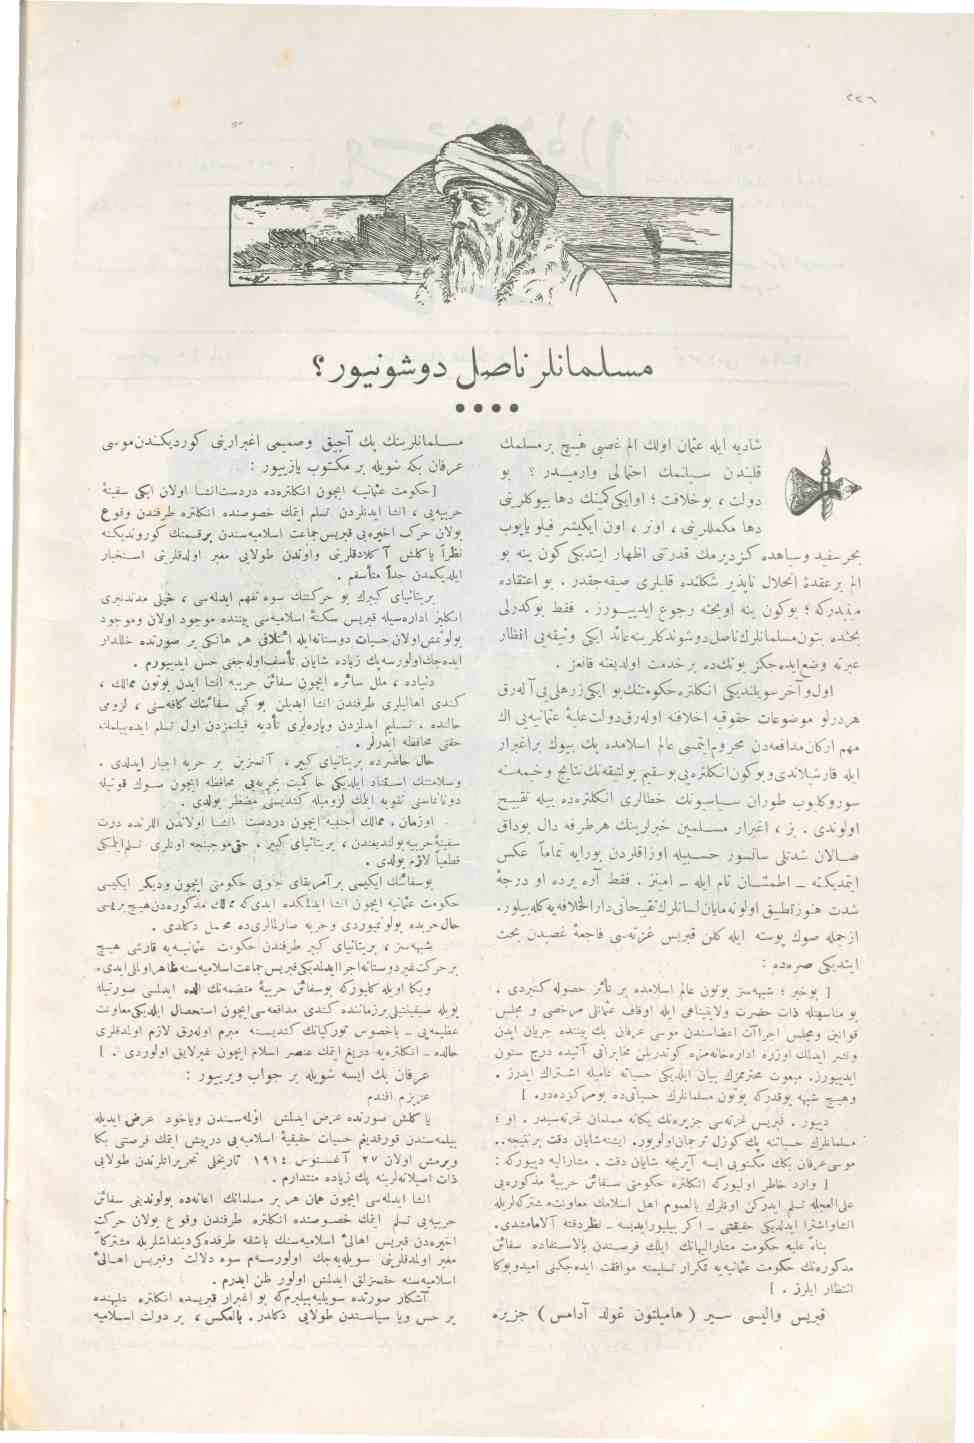 مسلمانلر ناصل دوشونیور ؟
شادیه ایله عثمان اولك الم غصبی هیچ بر مسلمك
قلبندن سیلنمك احتمالی وارمیدر ؟ بو
دولت ، بو خلافت ؛ او ایکی کمینك دها بیوکلرینی
دها مکمللرینی ، اونر ، اون ایکیشر فیلو یاپوب
بحر سفید و سیاهده کزدیرمك قدرتنی اظهار ایتدیکی کون ینه بو
الم بر عقدهٔ انحلال ناپذیر شکلنده قلبلری صیقه جقدر . بو اعتقاده
بوکون ینه او بحثه رجوع ایدییورز . فقط بوکدرلی
بحثده بتون مسلمانلرك ناصل دوشوندکلرینه عائد ایکی وثیقه یی انظار
عبرته وضع ایده جکز بونك ده بر خدمت اولدیغنه قانعز .
اول و آخر سویلندیکی انکلتره حکومتنك بو ایکی زرهلی یی آله رق
هر درلو موضوعات حقوقیه اخلافنه اوله رق دولت علیهٔ عثمانیه یی اك
مهم ارکان مدافعه دن محروم ایتمسی عالم اسلامده پك بیوك بر اغبرار
ایله قارشیلاندی و بوکون انکلتره یی بو سقیم پولتیقه نك نتایج وخیمه سنه
سوروکلیوب طوران سیاسیونك خطالری انکلتره ده بیله تقبیح
اولوندی . بز ، اغبرار مسلمین خبرلرینك هر طرفه دال بوداق
صالان شدتلی سانسور حسبیله اوزاقلردن بورایه تماماً عکس
ایتمدیکنه ـ اطمئنان تام ایله ـ امینز . فقط آره یرده او درجهٔ
شدت هنوز تطبیق اولونه مایان لسانلرك تقبیحاتی دارالخلافه یه کله بیلور.
ازجمله صوك پوسته ایله کلن قبریس غزته سی فاجعهٔ غصبدن بحث
ایتدیکی صره ده :
] بو خبر ؛ شبهه سز بوتون عالم اسلامده بر تأثر حصوله کتیردی .
بو مناسبتله ذات حضرت ولایتپناهی ایله اوقاف عثمانلی مرخصی و مجلس
قوانین و مجلس اجراآت اعضاسندن موسی عرفان بك بیننده جریان ایدن
و نشر ایدلك اوزره اداره خانه مزه کوندریلن مخابراتی آتیده درج ستون
ایدییورز. مبعوث محترممزك بیان ایله دیکی حسیاته تمامیله اشتراك ایدرز .
و هیچ شبهه یوقدرکه بوتون مسلمانلرك حسیاتی ده بو مرکزده در. [
دییور . قبریس غزته سی جزیره نك یکانه مسلمان غزته سیدر . او ؛
مسلمانلرك حسیاتنه پك کوزل ترجمان اولویور. ایشته شایان دقت بر نتیجه..
موسی عرفان بکك مکتوبی ایسه آیریجه شایان دقت . مشارالیه دییورکه :
] وارد خاطر اولیورکه انکلتره حکومتی سفائن حربیهٔ مذکوره یی
علی العجله تسلیم ایدرکن اونلرك بالعموم اهل اسلامك معاونت مشترکه لریله
انشا و اشترا ایدلدیکی حقیقتنی ـ اکر بیلیور ایدیسه ـ نظر دقته آلامامشدی.
بناءً علیه حکومت مشارالیهانك ایلك فرصتدن بالاستفاده سفائن
مذکوره نك حکومت عثمانیه یه تکرار تسلیمنه موافقت ایده جکنی امید و بوکا
انتظار ایلرز . [
قبریس والیسی سیر ( هامیلتون غولد آدامس ) جزیره
مسلمانلرینك پك آجیق و صمیمی اغبرارینی کوردیکندن موسی
عرفان بکه شویله بر مکتوب یازییور :
] حکومت عثمانیه ایچون انکلتره ده دردست انشا اولان ایکی سفینهٔ
حربیه یی ، انشا ایدنلردن تسلم ایتمك خصوصنده انکلتره طرفندن وقوع
بولان حرکت اخیره یی قبریس جماعت اسلامیه سندن بر قسمنك کوروندیکنه
نظراً یاکلش آکلادقلرینی و اوندن طولایی مغبر اولدقلرینی استخبار
ایلدیکمدن جداً متأسفم .
بریتانیای کبیرك بو حرکتنك سوء تفهم ایدلمسی ، خیلی مدتدنبری
انکلیز اداره سیله قبریس سکنهٔ اسلامیه سی بیننده موجود اولان و موجود
بولونمش اولان حسیات دوستانه ایله ائتلافی هر هانکی بر صورتده خللدار
ایده جك اولورسه پك زیاده شایان تأسف اوله جغنی حس ایدییورم .
دنیاده ، ملل سائره ایچون سفائن حربیه انشا ایدن بوتون ممالك ،
کندی اهالیلری طرفندن انشا ایدیلن بو کبی سفائنك کافه سنی ، لزومی
حالنده ، تسلیم ایدلزدن و پاره لری تأدیه قیلنمزدن اول تسلم ایده بیلمك
حقنی محافظه ایدرلر .
حال حاضرده بریتانیای کبیر ، آنسزین بر حربه اجبار ایدلدی .
و سلامتنك استناد ایلدیکی حاکمیت بحریه یی محافظه ایچون سوك قوتیله
دونانماسنی تقویه ایتمك لزومیله کندیسنی مضطر بولدی .
اوزمان ، ممالك اجنبیه ایچون دردست انشا اولانلدن اللرنده درت
سفینهٔ حربیه بولندیغندن ، بریتانیای کبیر ، حق موجبنجه اونلری تسلم ایتمکی
قطعیاً لازم بولدی .
بو سفائنك ایکیسی بر آمریقای جنوبی حکومتی ایچون و دیکر ایکیسی
حکومت عثمانیه ایچون انشا ایدلمکده ایدی که ممالك مذکوره دن هیچ بریسی
حال حربده بولونمیوردی و حربه صارلماری ده محتمل دکلدی .
شبهه سز ، بریتانیای کبیر طرفندن حکومت عثمانیه یه قارشی هیچ
بر حرکت غیر دوستانه اجرا ایدلمدیکی قبریس جماعت اسلامیه سنه ظاهر اولمالی ایدی.
و بکا اویله کلیورکه بو سفائن حربیهٔ منضمه نك الده ایدلمسی صورتیله
بویله صیقینتیلی بر زماننده کندی مدافعه سی ایچون استحصال ایلدیکی معاونت
عظیمه یی ـ باخصوص تورکیانك کندیسنه مبرم اوله رق لازم اولمدقلری
حالده ـ انکلتره یه دریغ ایتمك عنصر اسلام ایچون غیر لایق اولوردی . [
عرفان بك ایسه شویله بر جواب ویرییور :
عزیزم افندم
یاکلش صورتده عرض ایدلمش اوله سندن و یاخود عرض ایدیله
بیلمه سندن قورقدیغم حسیات حقیقیهٔ اسلامیه یی درپیش ایتمك فرصتنی بکا
ویرمش اولان ٢٧ آغستوس ١٩١٤ تاریخلی تحریراتلرندن طولایی
ذات اصیلانه لرینه پك زیاده منتدارم .
انشا ایدلمسی ایچون همان هر بر مسلمانك اعانه ده بولوندیغی سفائن
حربیه یی تسلم ایتمك خصوصنده انکلتره طرفندن وقوع بولان حرکت
اخیره دن قبریس اهالیٔ اسلامیه سنك باشقه طرفده کی دینداشلریله مشترکاً
مغبر اولدقلرینی سویله یه جك اولورسه م سوء دلالت و قبریس اهالیٔ
اسلامیه سنه حقسزلق ایدلمش اولور ظن ایدرم .
آشکار صورتده سویلیه بیلیرم که بو اغبرار قبریسده انکلتره علیهنده
بر حس و یا سیاستدن طولایی دکلدر. بالعکس ، بر دولت اسلامیه